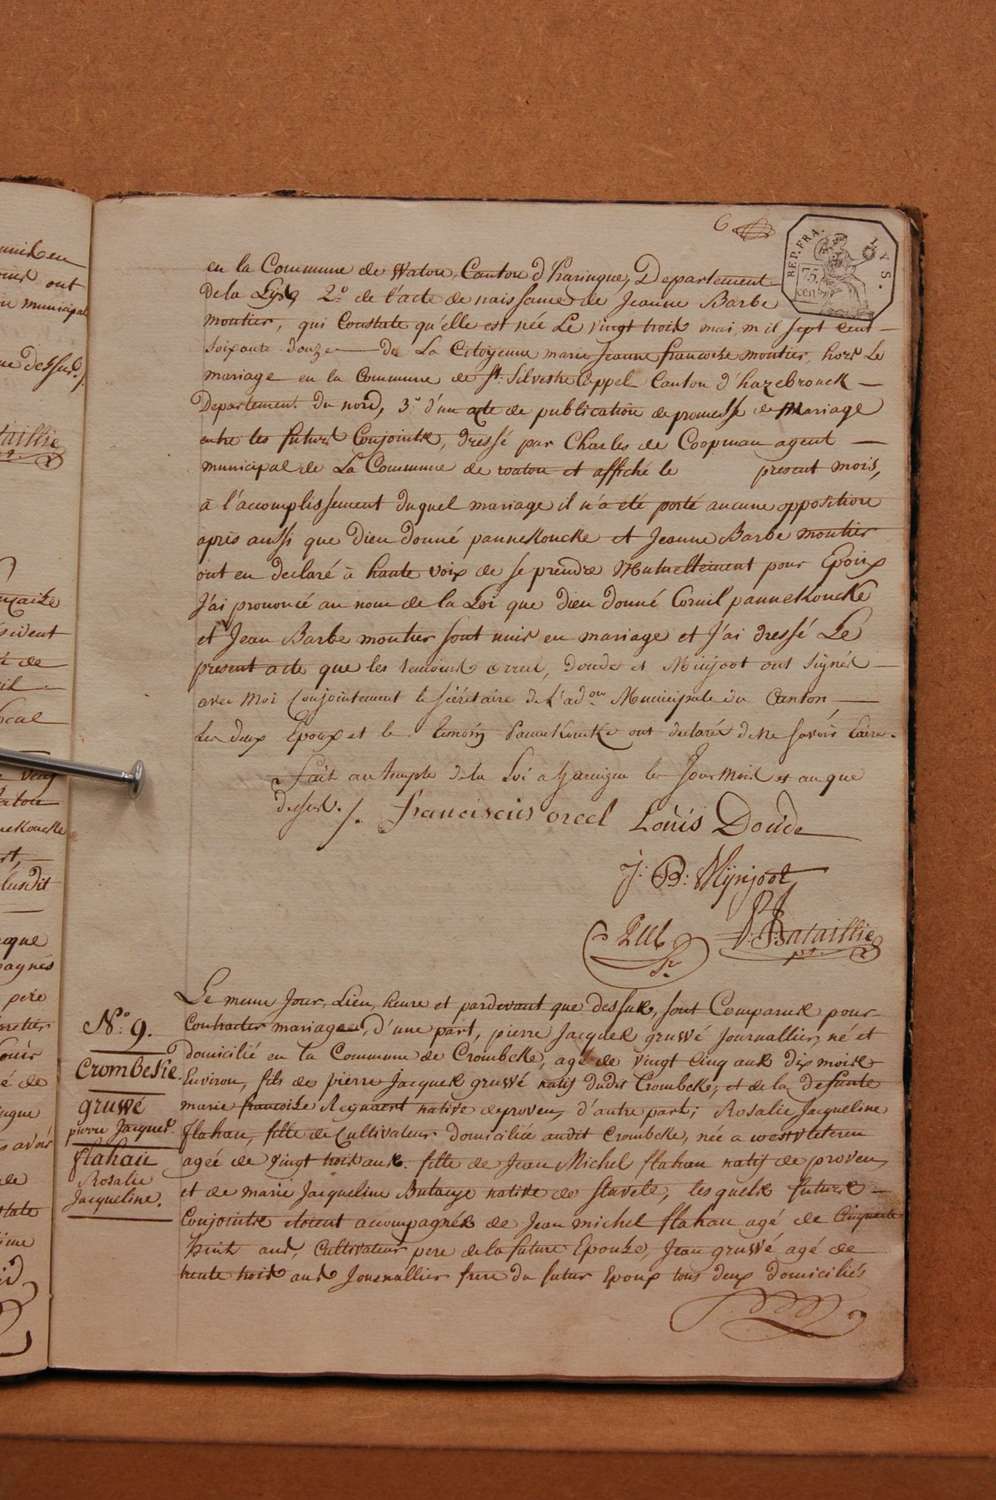 6
REP. FRA.
LYS.
75
cent.
en la Commune de Watou, Canton d'haringue, Departement
De la Lys, 2.° de l'acte de naissance de Jeanne Barbe
moutier, qui Constate qu'elle est née Le vingt trois mai, mil sept cent
Soixante douze de La Citoyenne marie Jeanne francoise moutier, hors Le
mariage en la Commune de St. Silvestre Cappel Canton d'hazebrouck
Departement Du nord, 3.° d'un acte de publication de promesse de Mariage
entre les futurs Conjoints, dressé par Charles de Coopman agent
municipal de La Commune de watou et affiché le present mois,
à l'accomplissement duquel mariage il n'a été porté aucune opposition
après aussi que Dieu donné pannekoucke et Jeanne Barbe moutier
ont en declaré à haute voix de se prendre Mutuellement pour Epoux
J'ai prononcé au nom de la Loi que Dieu donné Corneil pannekoucke
et Jean Barbe moutier sont unis en mariage et J'ai dressé Le
present acte que les temoins orcel, Doude et Minjoot ont signés
avec Moi Conjointement le sécrétaire de L'ad.on Municipale du Canton
Les deux Epoux et le temoin Pannekoucke ont declaré de ne savoir Ecrire.
Fait au temple de la Loi a haringue les Jour Mois et an que
Dessus. /. Franciscus orcel Louis Doude
J: B: Mijnjoot
P. J. Bataillie
Le meme Jour, Lieu, heure et pardevant que dessus, sont Comparus pour
N.° 9.
Contracter mariage, d'une part, pierre Jacques gruwé Journallier, né et
Crombeke
domicilié en la Commune de Crombeke, agé de vingt cinq ans dix mois
Environ, fils de pierre Jacques gruwé natif dudit Crombeke, et de la defunte
gruwé
marie francoise native de proven, d'autre part, Rosalie Jacqueline
pierre Jacques
flahau, fille de Cultivateur domiciliée audit Crombeke, née a westvleteren
flahau
agée de vingt trois ans. fille de Jean Michel flahau natif de proven,
Rosalie
Jacqueline.
et de marie Jacqueline Butaeye native de stavele, lesquels futurs
Conjoints etoient accompagnés de Jean michel flahau agé de Cinquante
huit ans, Cultivateur pere de la future Epouse, Jean gruwé agé de
trente trois ans Journallier frere du futur Epoux tous deux domiciliés